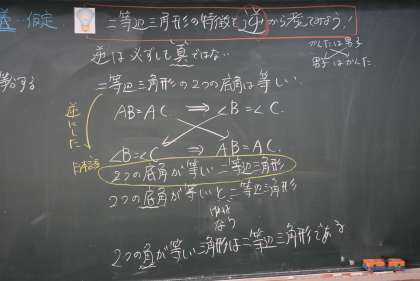 義…仮定
二等辺三角形の特徴を逆から考えてみよう!
逆は必ずしも真ではない…
かんたは男子
男子はかんた
二等辺三角形の2つの底角は等しい
AB=AC ⇒ ∠B=∠C.
逆にした
∠B=∠C ⇒ AB=AC.
日本語
2つの底角が等しい二等辺三角形
2つの底角が等しいと二等辺三角形
なら
2つの角が等しい三角形は二等辺三角形である